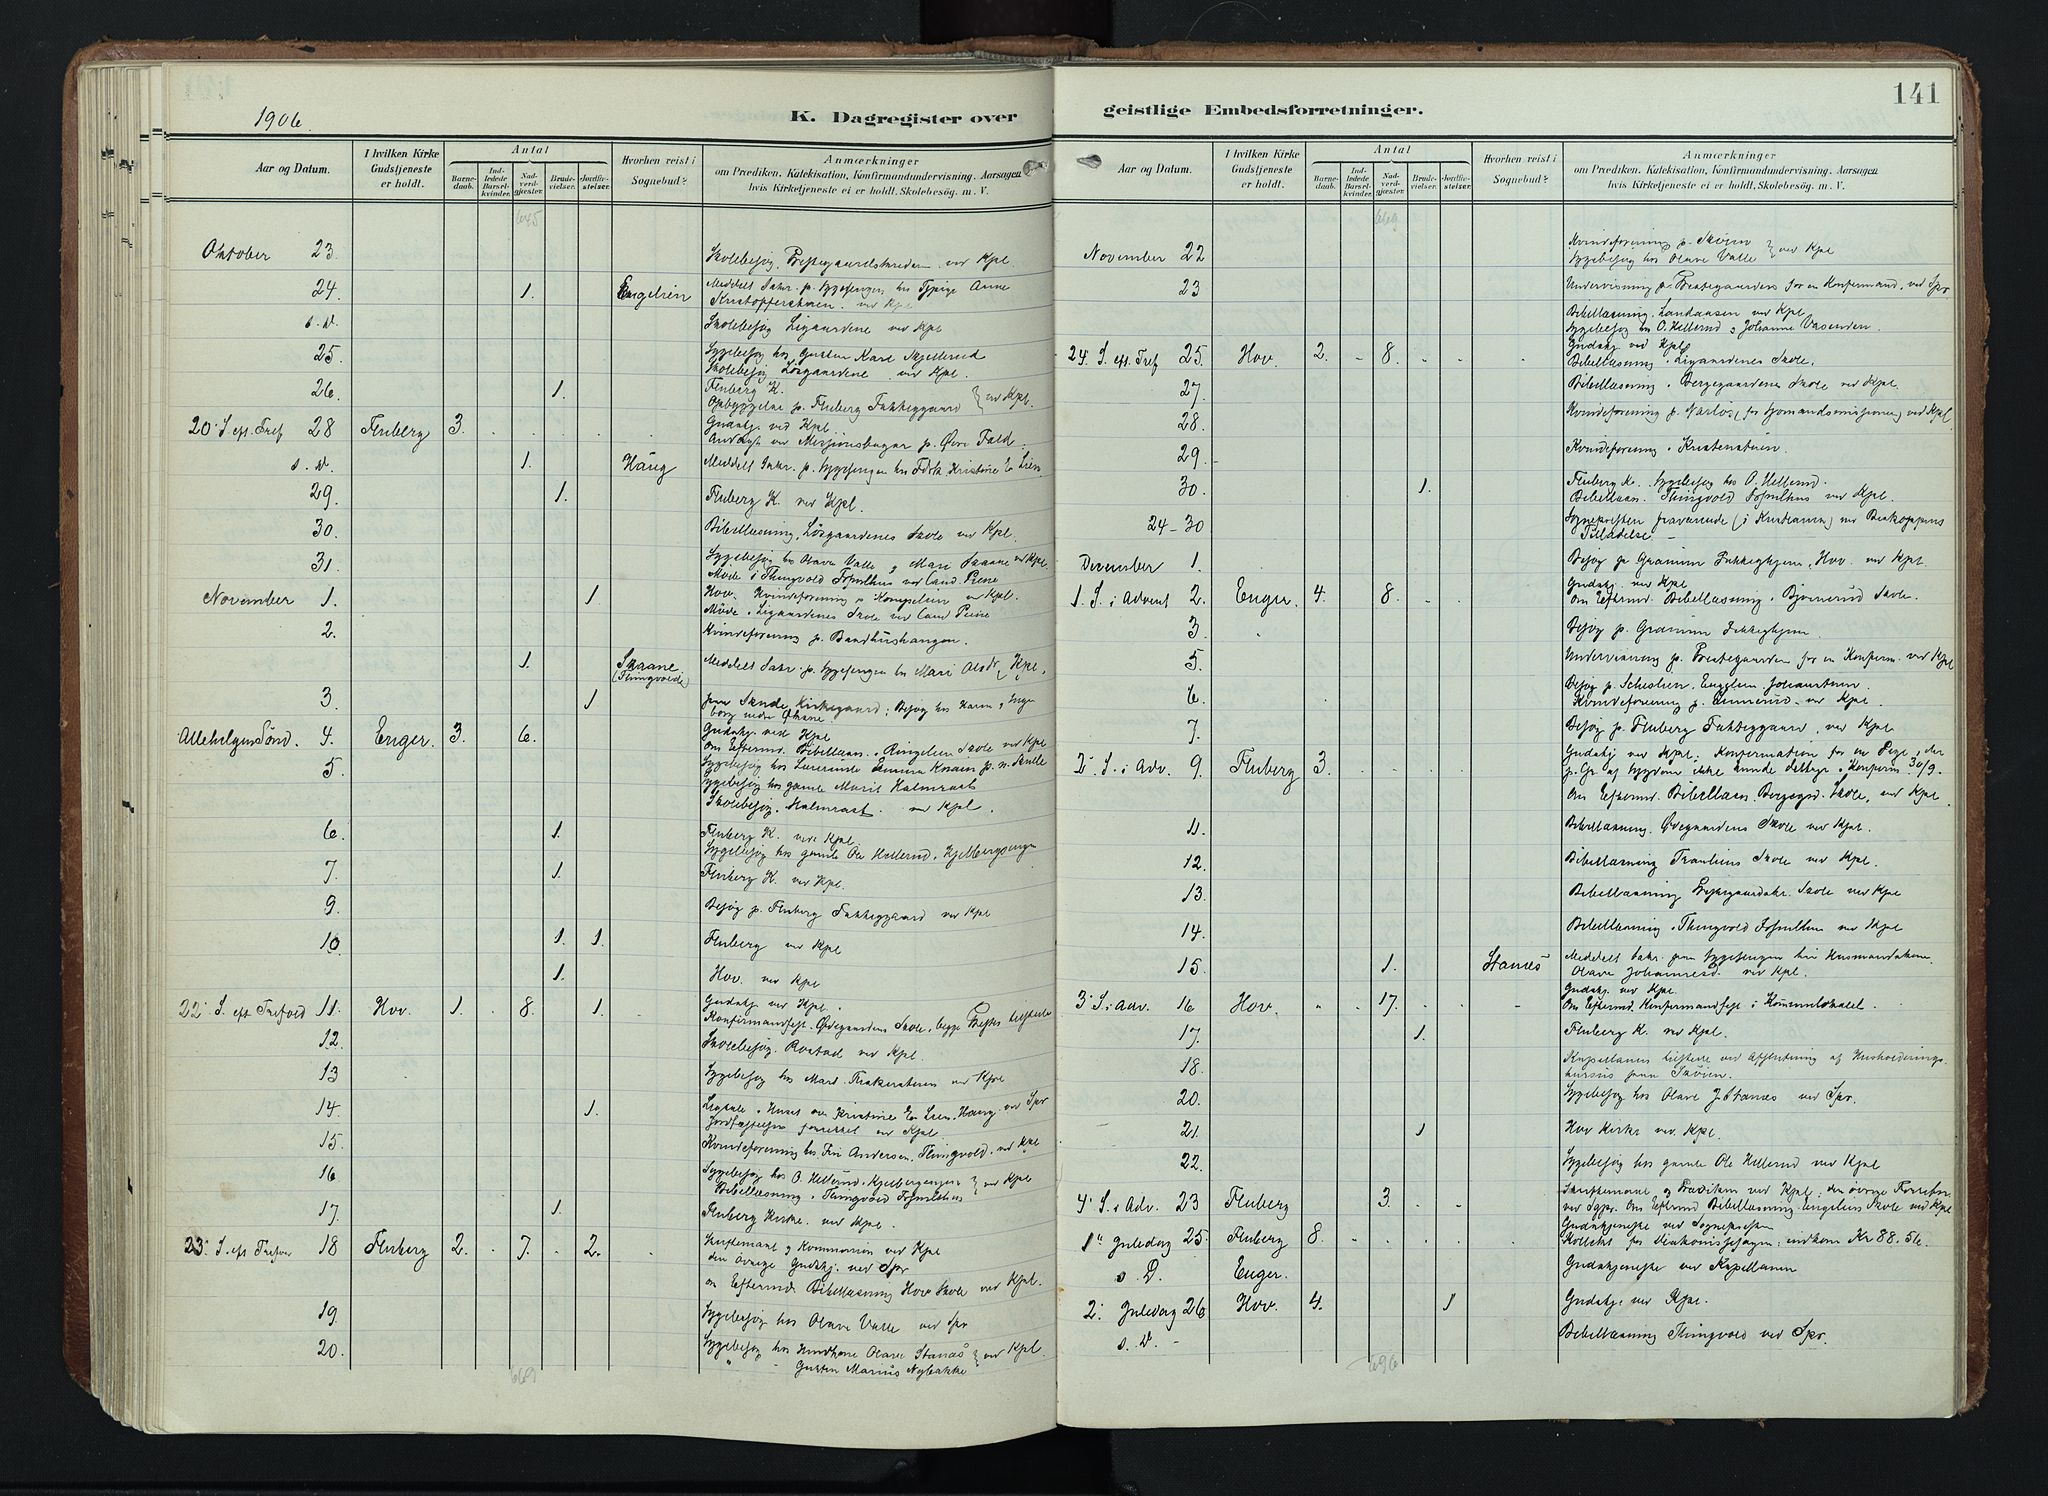 141
1906.
K. Dagregister over geistlige Embedsforretninger.
Aar og Datum.
I hvilken Kirke Gudstjeneste er holdt.
Antal
Barnedaab.
Indledede Barselkvinder.
Nadverdgjester.
Brudevielser.
Jordfæstelser.
Hvorhen reist i Sognebud?
Anmærkninger
om Prædiken, Katekisation, Konfirmandundervisning, Aarsagen
hvis Kirketjeneste ei er holdt, Skolebesøg m. V.
645
Oktober 23. Skolebesøg, Prestegaardskredsen ved Kpl.
24. 1. Engelien Meddelt Sakr. p. Sygesengen hos Anne
Kristoffersen ved Kpl
s. D. Skolebesøg Ligaardene ved Kpl
25. Sygebesøg hos Gustav Karl Skjellerud
Skolebesøg Løsgaardene ved Kpl.
26. 1. Fluberg K.
Opbyggelse p. Fluberg Fattiggaard } ved Kpl.
20' S. eft. Tref 28 Fluberg 3. Gudstj. ved Kpl.
Andagt ved Missionsbazar p. Øvre Fald
s. D. 1. Haug Meddelt Sakr. p. Sygesengen hos Kristine E. Lien
29. 1. Fluberg K. ved Kpl.
30. Bibellæsning, Løsgaardenes Skole ved Kpl.
31. Sygebesøg hos Olava Valle og Mari Skaane ved Kpl.
Møde i Thingvold Forsmlhus ved Cand. Piene
November 1. 1. Hov. Kvindeforening ved Kpl.
Møde i Ligaardenes Skole ved Cand Piene
2. Kvindeforening p. Bondhushaugen.
1. Skaane (Thingvold) Meddelt Sakr. p. Sygesengen hos Mari Olsdr (Kpl.
3. 1 Søndre Kirkegaard; Besøg hos Karen og Inge
borg
Allehelgens Sønd. 4. Enger. 3. 6. Gudstj. ved Kpl
Om Efterm. Bibellæsn. Ringelien Skole ved Kpl
5. Sygebesøg hos Lærerinde
Sygebesøg hos gamle Marit Halmrast
Skolebesøg, Halmrast ved Kpl.
6. 1. Fluberg K. ved Kpl.
Sygebesøg hos gamle Ole Hellerud, Kjelbergsengen
7. 1. Fluberg K. ved Kpl.
9. Besøg p. Fluberg Fattiggaard ved Kpl
10. 1. 1. Fluberg ved Kpl
1. Hov. ved Kpl
22' S. eft Trefold 11. Hov. 1. 8. 1. Gudstj ved Kpl.
Konfirmandfest. Ødegaardens Skole, begge Prester tilstede
12. Skolebesøg. Rostad ved Kpl.
13 Sygebesøg hos ved Kpl
14. 1. Ligtale i Huset over Kristine E. Lien, Haug, ved Spr
Jordfæstelsen forrettet ved Kpl
15. Kvindeforening hos Fru Andersen, Thingvold. ved Kpl
16 Sygebesøg hos O. Hellerud, Kjelbergsengen
Bibellæsning i Thingvold Forsmlhus } ved Kpl
17. 1. Fluberg Kirke. ved Kpl.
23' S. eft Trefor 18 Fluberg 2. 7. 2. Skriftemaal og Kommunion ved Kpl
den øvrige Gudstj. ved Spr
om Efterm. Bibellæsning Hov Skole ved Kpl.
19. Sygebesøg hos Olava Valle ved Spr
20. Sygebesøg hos Olave Stanæs } ved Kpl.
" - Gusten Marius Nybakke
669
669
November 22 Kvindeforening p. Skøien
Sygebesøg hos Olava Valle } ved Kpl
23 Undervisning p. Prestegaarden for en Konfirmand, ved Spr
Bibellæsning, Landaasen ved Kpl
Sygebesøg hos O. Hellerud og Johanne Vasenden.
24. S. eft. Tref 25. Hov. 2. - 8. Gudstj. ved Kpl
Bibellæsning, Ligaardenes Skole.
27. Bibellæsning i Bergegaardenes Skole ved Kpl.
28. Kvindeforening p. (for Sjømandsmissionen) ved Kpl
29. Kvindeforening i Kristenstuen
30. 1. Fluberg K. Sygebesøg hos O. Hellerud.
Bibellæsn. Thingvold Forsmlhus ved Kpl.
24-30 Sognepresten fraværende (i Kristiania) med Biskoppens
Tilladelse -
December 1. Besøg p. Granum Fattighjem, Hov. ved Kpl.
1. S. i Advent 2. Enger. 4. 8. Gudstj. ved Kpl
Om Efterm. Bibellæsning i Bjørnerud Skole.
3. Besøg p. Granum Fattighjem.
5. Undervisning p. Prestegaarden for en Konfirm. ved Kpl
6. Besøg p.
Kvindeforening p. ved Kpl.
7. Besøg p. Fluberg Fattiggaard, ved Kpl
2' S. i Adv. 9. Fluberg 3. Gudstj ved Kpl. Konfirmation for en Pige, der
p. Gr. af Sygdom ikke kunde deltage i Konfirm. 30/9.
Om Efterm. Bibellæsn. Bergegd. Skole, ved Kpl.
11. Bibellæsning. Ødegaardens Skole ved Kpl.
12. Bibellæsning Skole ved Kpl.
13. Bibellæsning Prestegaardskr. Skole ved Kpl
14. Bibellæsning, Thingvold Forsmlhus ved Kpl
15. 1. Stanæs Meddelt Sakr. paa Sygesengen
Olave Johannesd. ved Kpl.
3' S. i Adv. 16 Hov. - 17. Gudstj. ved Kpl.
Om Efterm. Konfirmandfest i Kommunelokalet.
17. 1. Fluberg K. ved Kpl.
18. Kapellanen tilstede ved Afslutning af Husholdnings-
kursus paa Skøien.
20. Sygebesøg hos Olave J. Stanæs ved Spr.
21. 1 Hov Kirke ved Kpl.
22. Sygebesøg hos gamle Ole Hellerud ved Kpl
4' S. i Adv. 23 Fluberg 3. Skriftemaal og Prædiken ved Kpl, den øvrige Forretn.
ved Sgpr. Om Efterm Bibellæsning Engeliens Skole ved Kpl
1' Juledag 25. Fluberg 8. Gudstjeneste ved Sognepresten
Kollekt for Diakonissesagen, indkom Kr 88.56.
s. D. Enger. Gudstjeneste ved Kapellanen
2' Juledag 26 Hov. 4. 1 Gudstj ved Kpl.
s. D. - Bibellæsning Thingvold ved Spr.
696